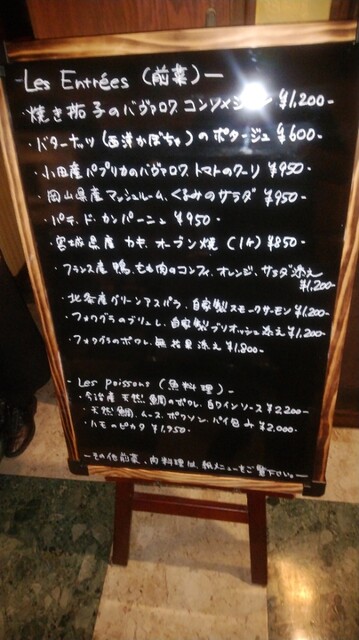 -Les Entrées (前菜)-
・焼き茄子のバヴァロワ コンソメジュレ ¥1,200-
・バターナッツ(西洋かぼちゃ)のポタージュ ¥600-
・小田産パプリカのバヴァロワ、トマトのクーリ ¥950-
・岡山県産マッシュルーム、くるみのサラダ ¥950-
・パテ・ド・カンパーニュ ¥950-
・宮城県産 カキ、オーブン焼 (1ケ) ¥850-
・フランス産 鴨、もも肉のコンフィ、オレンジ、サラダ添え
¥1,200-
・北条産グリーンアスパラ、自家製スモークサーモン ¥1,200-
・フォワグラのブリュレ、自家製ブリオッシュ添え ¥1,200-
・フォワグラのポワレ、無花果添え ¥1,800-
-Les poissons (魚料理)-
・今治産 天然鯛のポワレ、白ワインソース ¥2,200-
・天然鯛、ムース、ポワソン、パイ包み ¥2,000-
・ハモのピカタ ¥1,950-
-その他前菜、肉料理は、紙メニューをご覧下さい。-